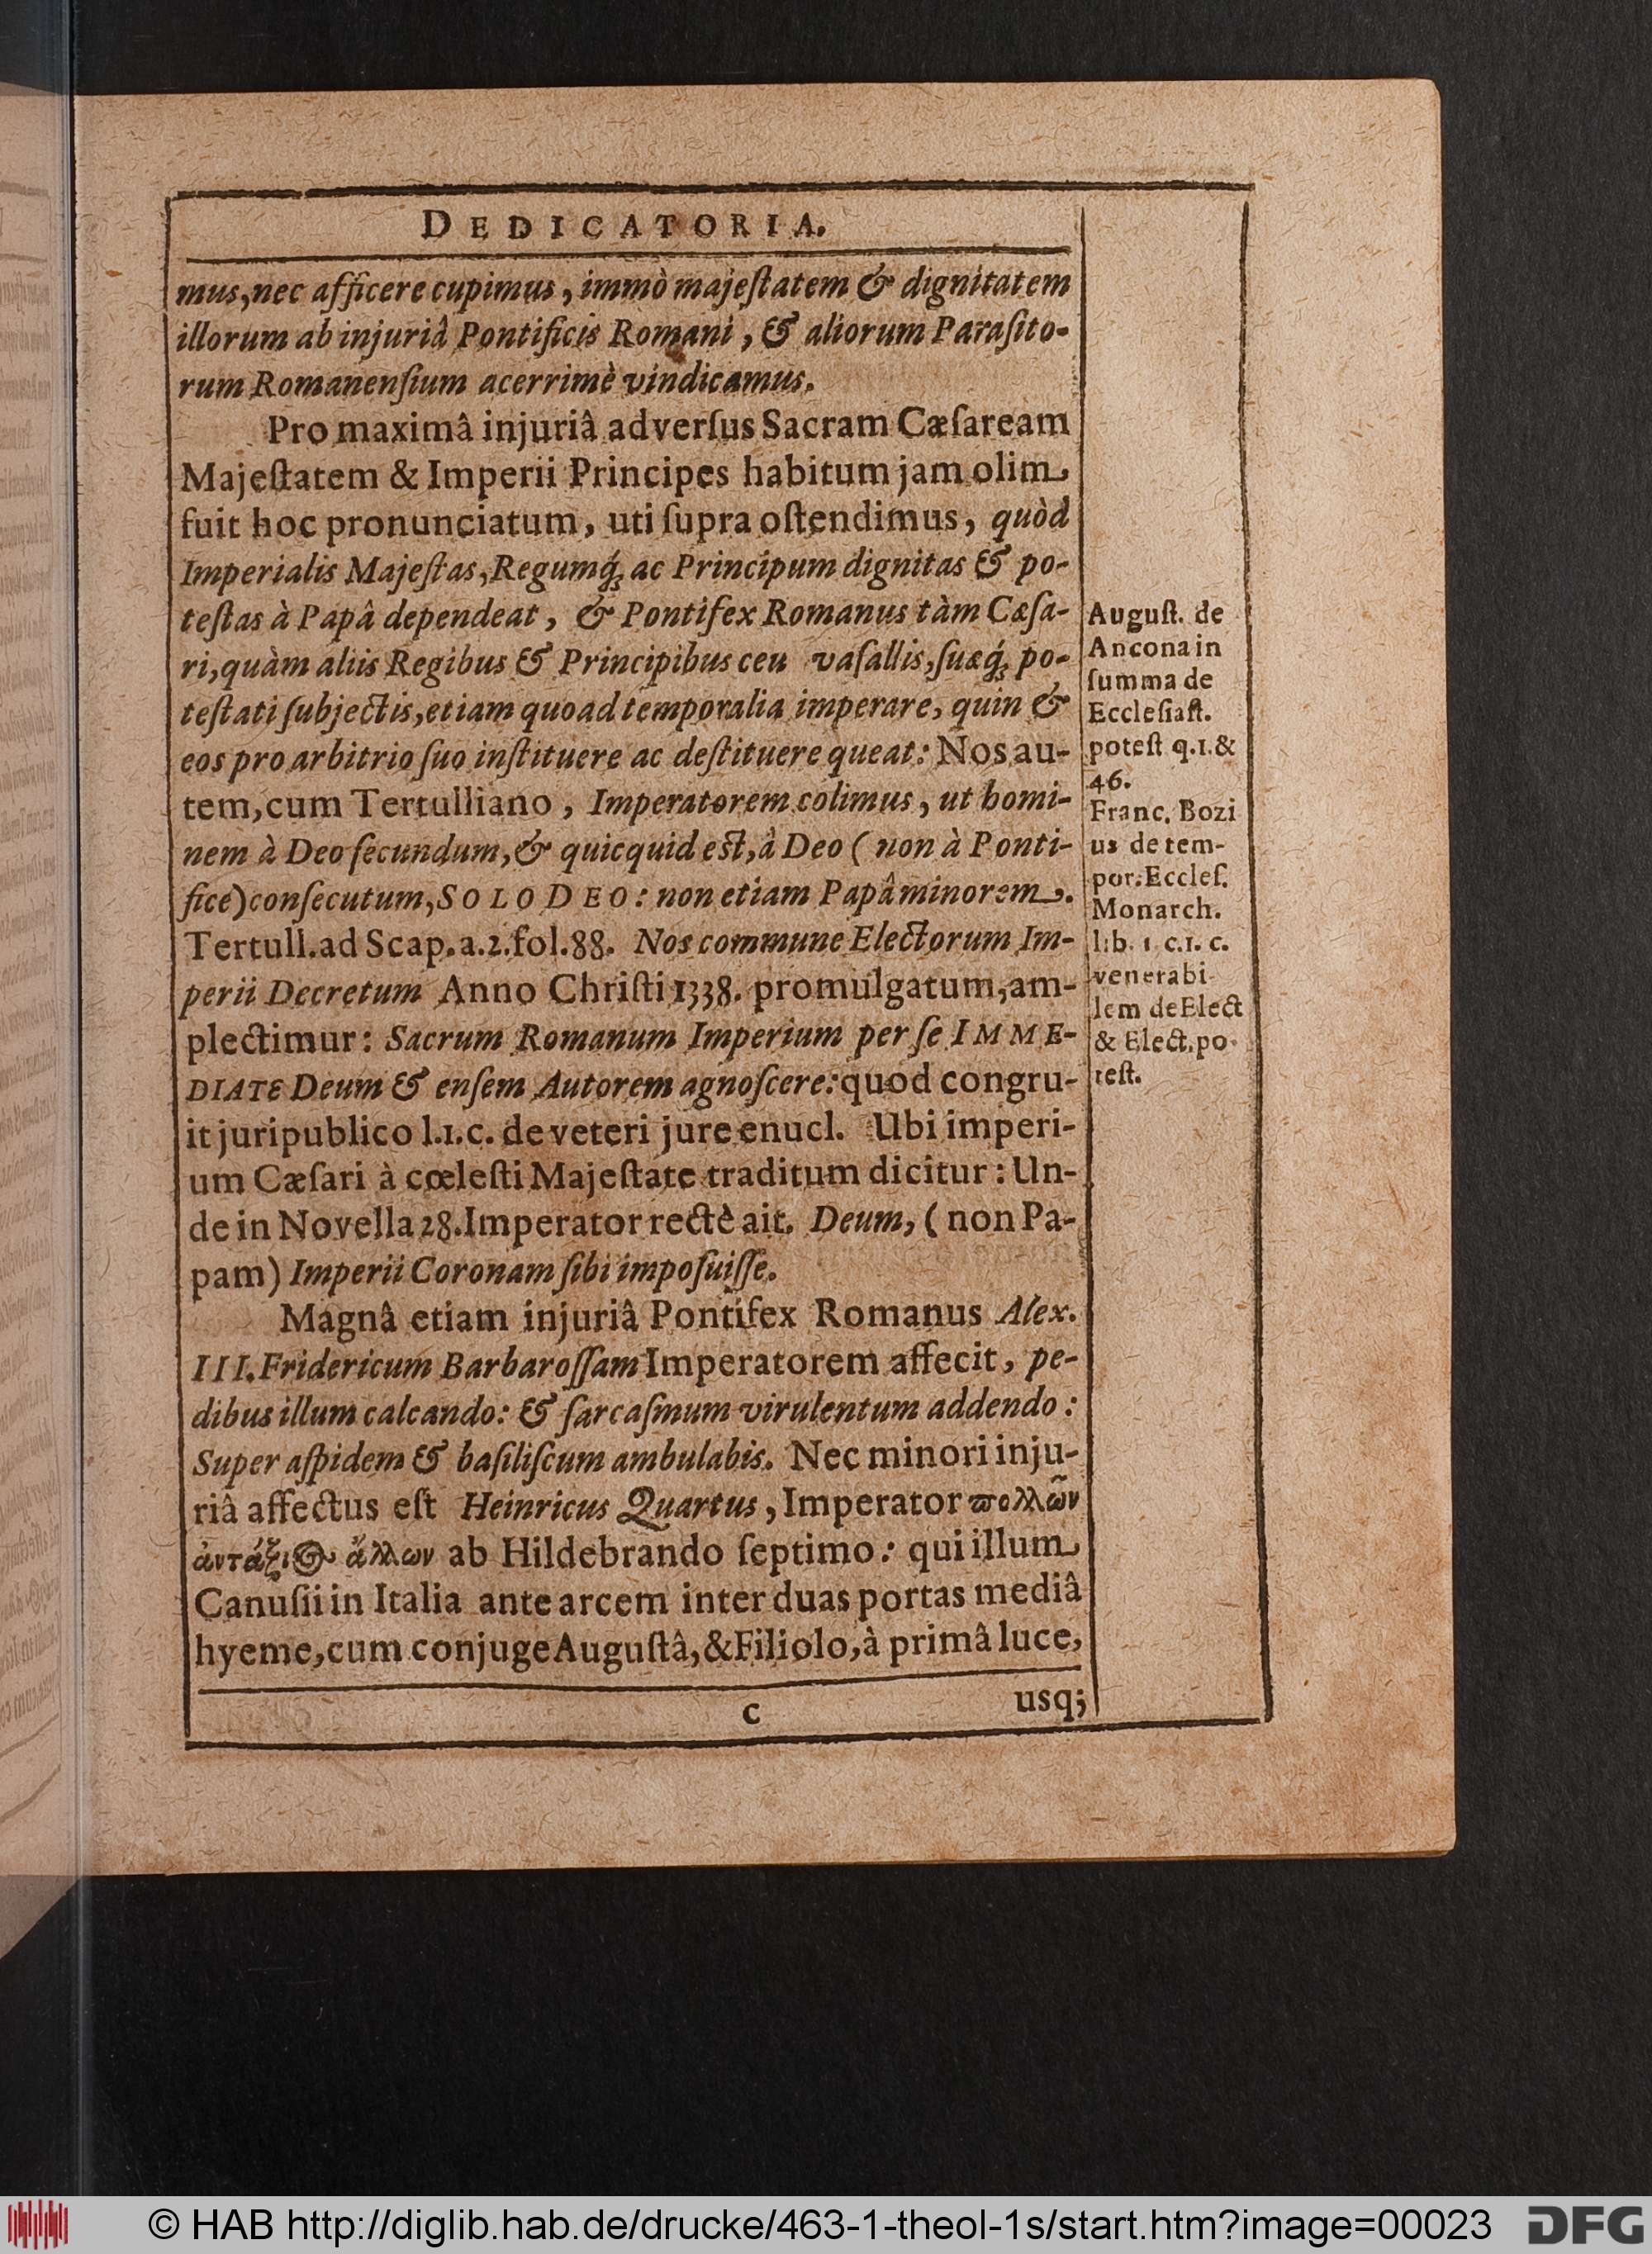 DEDICATORIA.
mus, nec afficere cupimus, immò majeſtatem & dignitatem
illorum ab injuriâ Pontificis Romani, & aliorum Paraſito-
rum Romanenſium acerrimè vindicamus.
Pro maximâ injuriâ adverſus Sacram Cæſaream
Majeſtatem & Imperii Principes habitum jam olim
fuit hoc pronunciatum, uti ſupra oſtendimus, quòd
Imperialis Majeſtas, Regumq́; ac Principum dignitas & po-
teſtas à Papâ dependeat, & Pontifex Romanus tàm Cæſa-
ri, quàm aliis Regibus & Principibus ceu vaſallis, ſuæq́; po-
teſtati ſubjectis, etiam quoad temporalia imperare, quin &
eos pro arbitrio ſuo inſtituere ac deſtituere queat: Nos au-
tem, cum Tertulliano, Imperatorem colimus, ut homi-
nem à Deo ſecundum, & quicquid eſt, â Deo ( non à Ponti-
fice) conſecutum, SOLO DEO: non etiam Papâ minorem.
Tertull. ad Scap. a. 2. fol. 88. Nos commune Electorum Im-
perii Decretum Anno Chriſti 1338. promulgatum, am-
plectimur: Sacrum Romanum Imperium per ſe IMME-
DIATE Deum & enſem Autorem agnoſcere: quod congru-
it juri publico l. 1. c. de veteri jure enucl. Ubi imperi-
um Cæſari à cœleſti Majeſtate traditum dicitur: Un-
de in Novella 28. Imperator rectè ait. Deum, ( non Pa-
pam) Imperii Coronam ſibi impoſuiſſe.
Magnâ etiam injuriâ Pontifex Romanus Alex.
III. Fridericum Barbaroſſam Imperatorem affecit, pe-
dibus illum calcando: & ſarcaſmum virulentum addendo:
Super aſpidem & baſiliſcum ambulabis. Nec minori inju-
riâ affectus eſt Heinricus Quartus, Imperator πολλῶν
ἀντάξιος ἄλλων ab Hildebrando ſeptimo: qui illum
Canuſii in Italia ante arcem inter duas portas mediâ
hyeme, cum conjuge Auguſtâ, & Filiolo, à primâ luce,
c usq;
Auguſt. de
Ancona in
ſumma de
Eccleſiaſt.
poteſt q. 1. &
46.
Franc. Bozi
us de tem-
por. Eccleſ.
Monarch.
lib. 1 c. 1. c.
venerabi-
lem de Elect
& Elect. po-
teſt.
© HAB http://diglib.hab.de/drucke/463-1-theol-1s/start.htm?image=00023
DFG